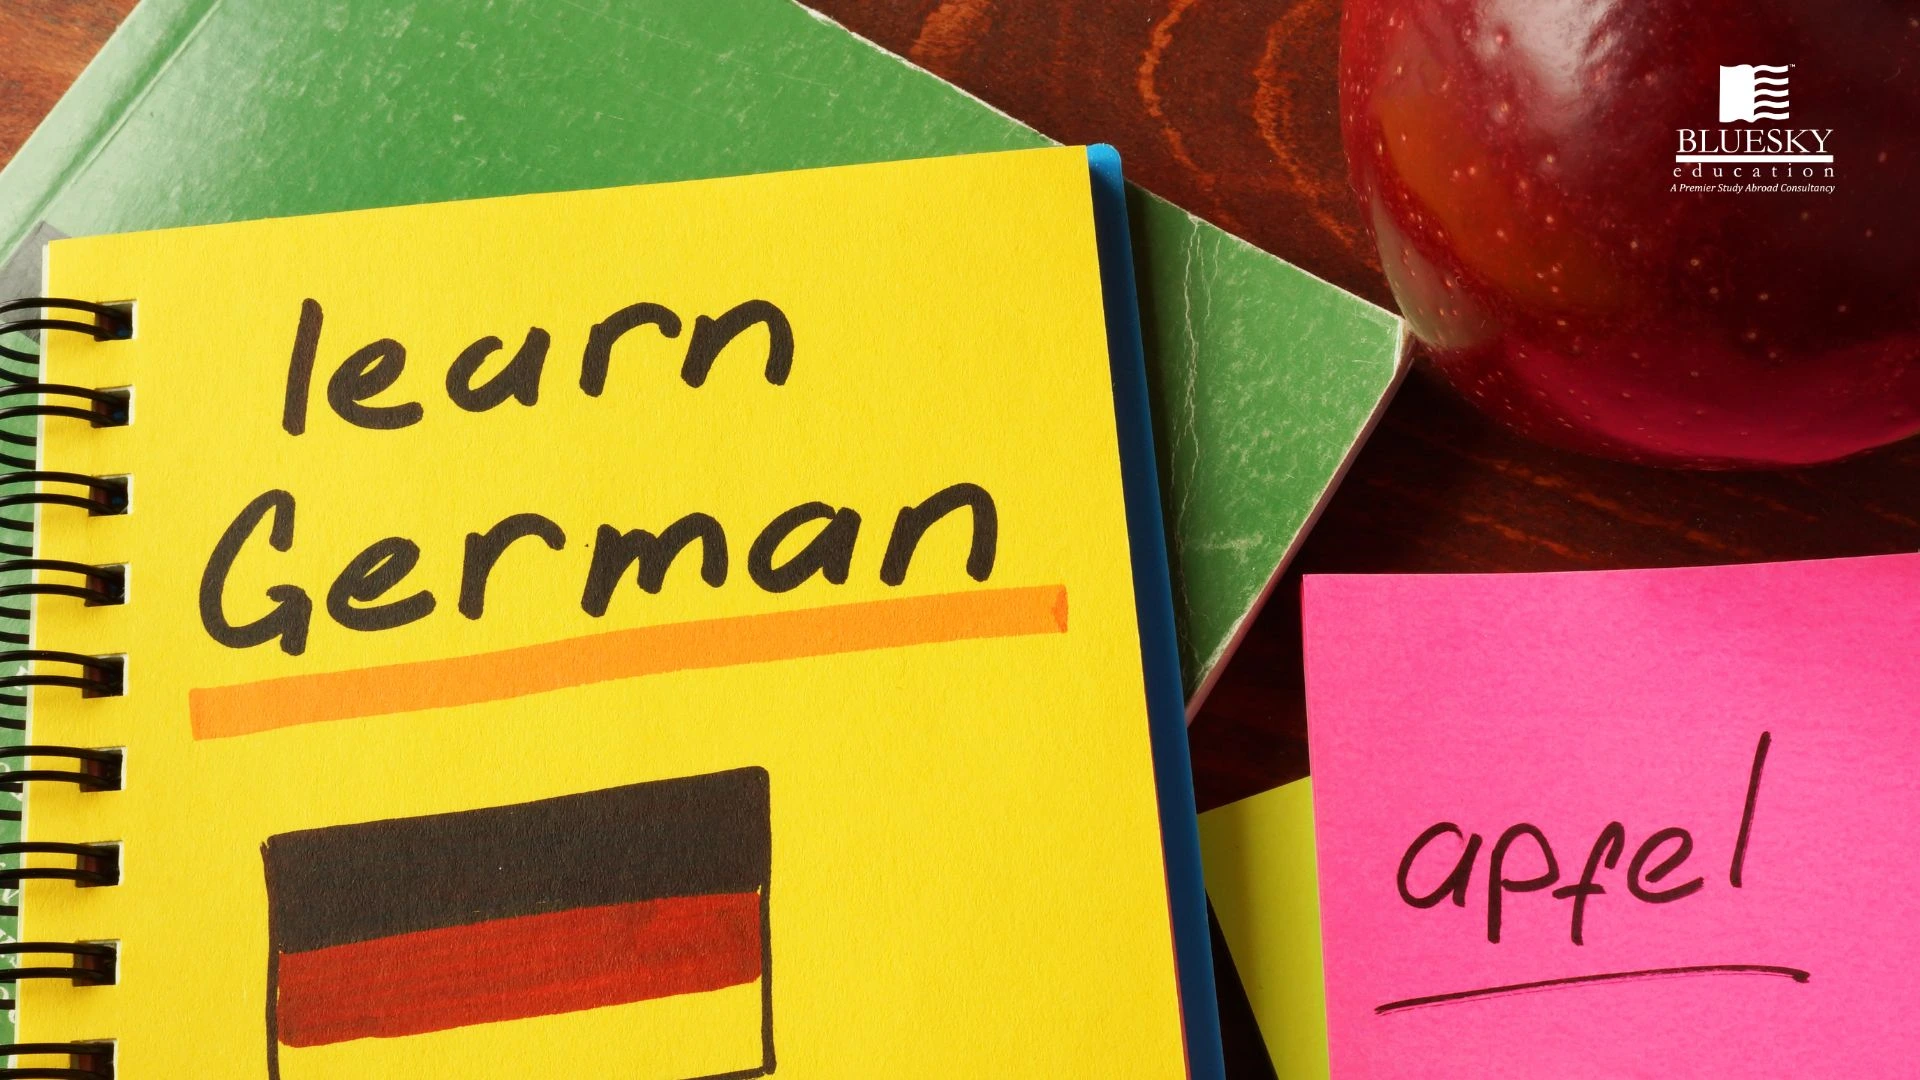 BLUESKY
education
A Premier Study Abroad Consultancy
learn
German
apfel